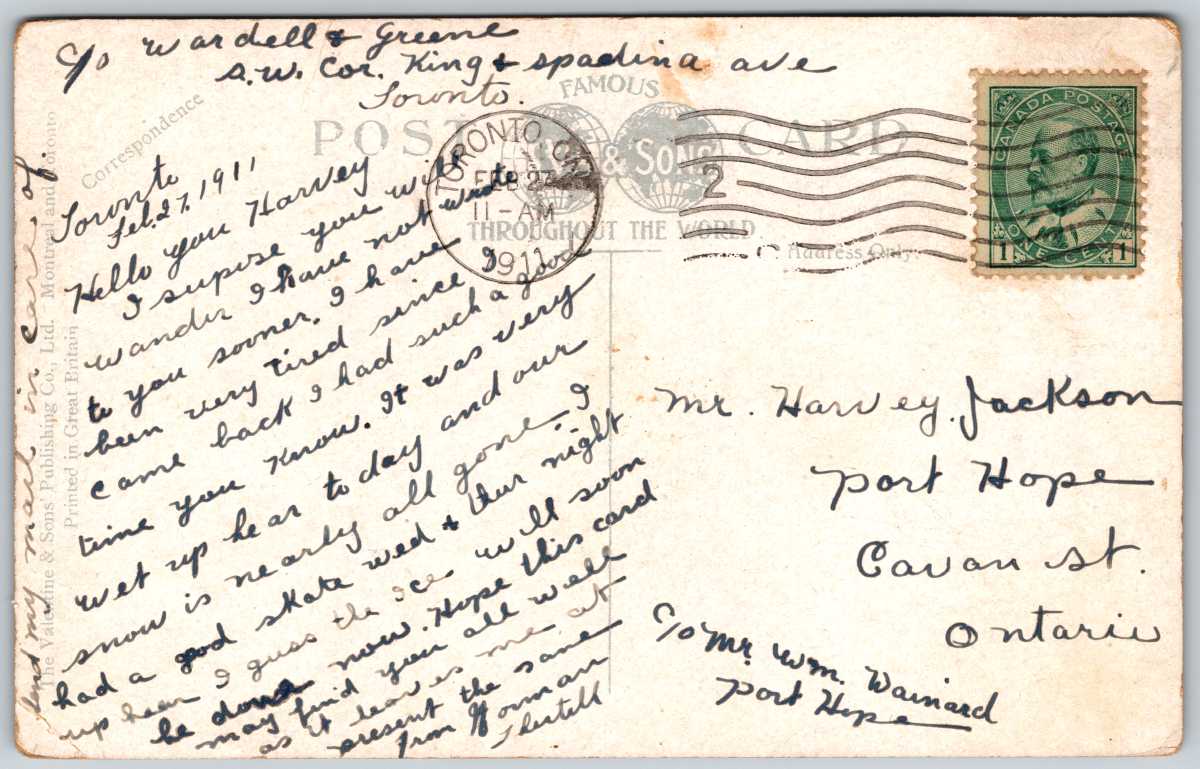 c/o Wardell & Greene
S.W. Cor. King & Spadina ave
Toronto.
FAMOUS
POST CARD
& SONS
THROUGHOUT THE WORLD
Correspondence
Address Only.
TORONTO, CA
FEB 27
11 - AM
1911
2
CANADA POSTAGE
1 ONE CENT 1
Toronto
Feb. 27, 1911
Hello you Harvey
I supose you will
wander I have not wrote
to you sooner. I have
been very tired since I
came back I had such a good
time you know. It was very
wet up hear to day and our
snow is nearly all gone. I
had a good skate wed & thur night
up hear I guss the Ice will soon
be done now. Hope this card
may find you all well
as it leaves me at
present the same
from Norman
send my mail in care of.
The Valentine & Sons' Publishing Co., Ltd. Montreal and Toronto
Printed in Great Britain
Mr. Harvey. Jackson
Port Hope
Cavan st.
Ontario
c/o Mr. Wm. Wainard
Port Hope